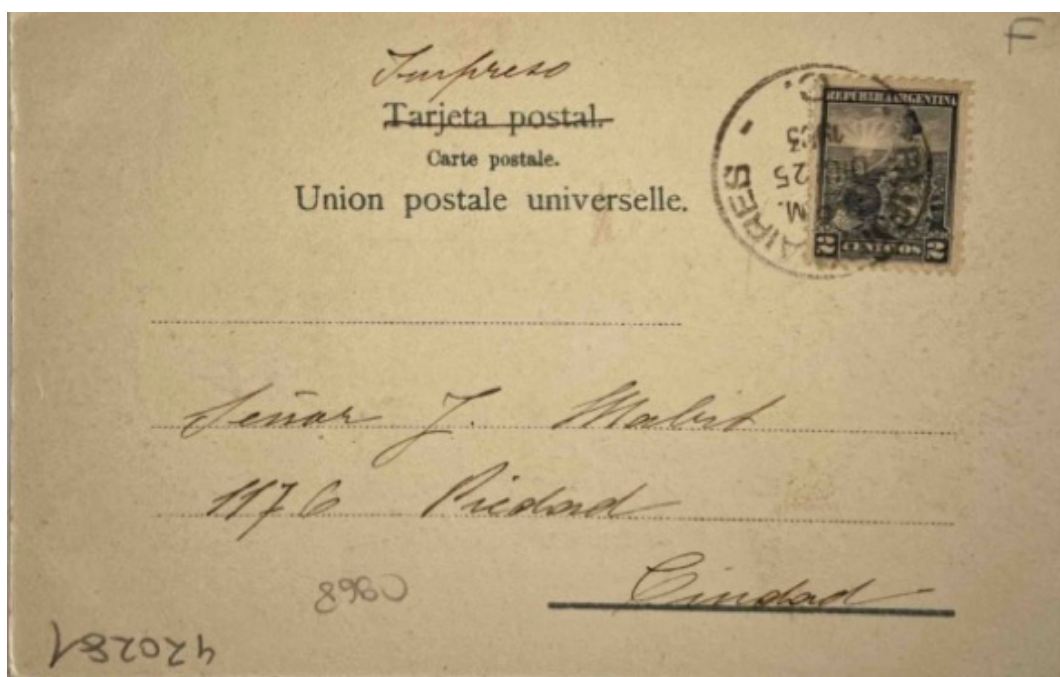 F
Impreso
Tarjeta postal.
Carte postale.
Union postale universelle.
REPUBLICA ARGENTINA
2 CENTAVOS 2
AIRES
25
1903
Señor J. Mabit
1176 Piedad
Ciudad
8960
420281